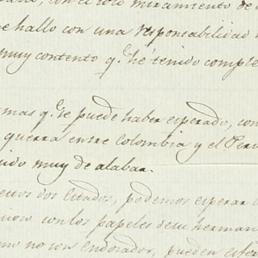 con el solo miramiento de
hallo con una responsabilidad
muy contento q.e hé tenido comple
mas q.e se puede haber esperado, con
guerra entre Colombia y el Peru
ido muy de alabar.
dos Estados, podemos esperar
con los papeles de su herman
no son pueden